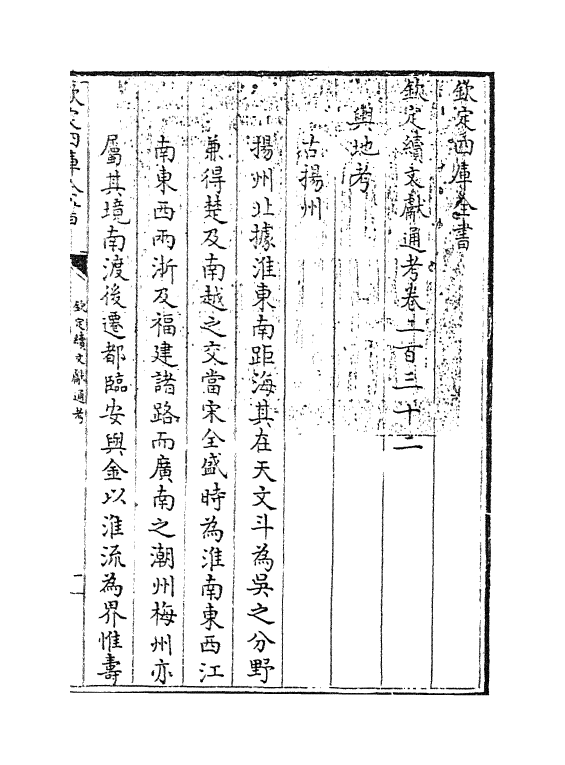 欽定四庫全書
欽定續文獻通考卷二百三十二
輿地考
古揚州
揚州北據淮東南距海其在天文斗為吳之分野
兼得楚及南越之交當宋全盛時為淮南東西江
南東西兩浙及福建諸路而廣南之潮州梅州亦
屬其境南渡後遷都臨安與金以淮流為界惟壽
欽定四庫全書
欽定續文獻通考